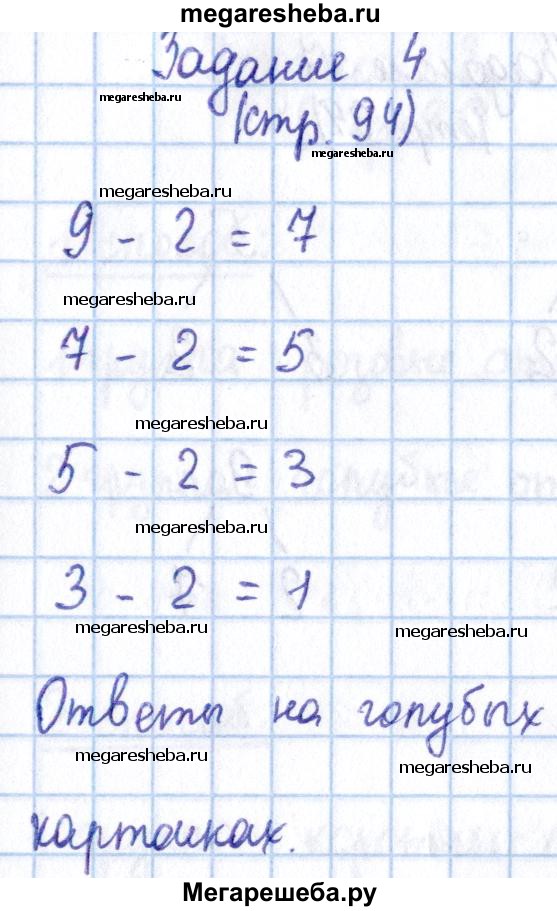 megaresheba.ru
Задание 4
megaresheba.ru
(стр. 94)
megaresheba.ru
megaresheba.ru
9 - 2 = 7
megaresheba.ru
7 - 2 = 5
megaresheba.ru
5 - 2 = 3
megaresheba.ru
3 - 2 = 1
megaresheba.ru
megaresheba.ru
Ответы на голубых
megaresheba.ru
megaresheba.ru
карточках.
Мегарешеба.ру